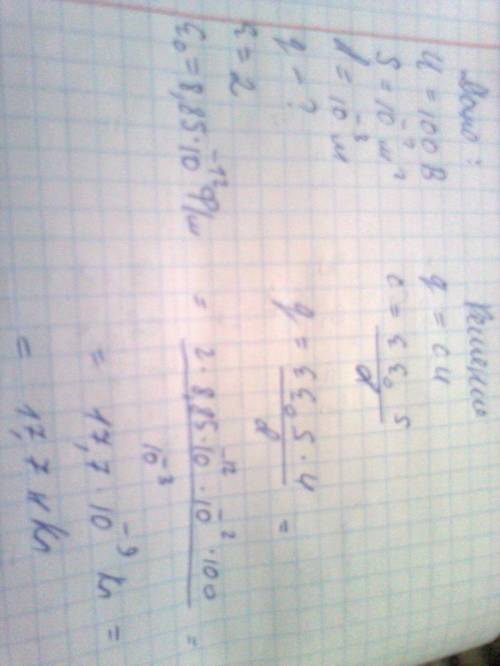 Дано:
U = 100 В
S = 10⁻² м²
d = 10⁻³ м
q - ?
ε = 2
ε₀ = 8,85·10⁻¹² Ф/м
Решение
q = CU
C = εε₀S / d
q = εε₀S·U / d =
= 2·8,85·10⁻¹²·10⁻²·100 / 10⁻³ =
= 17,7·10⁻⁹ Кл =
= 17,7 нКл